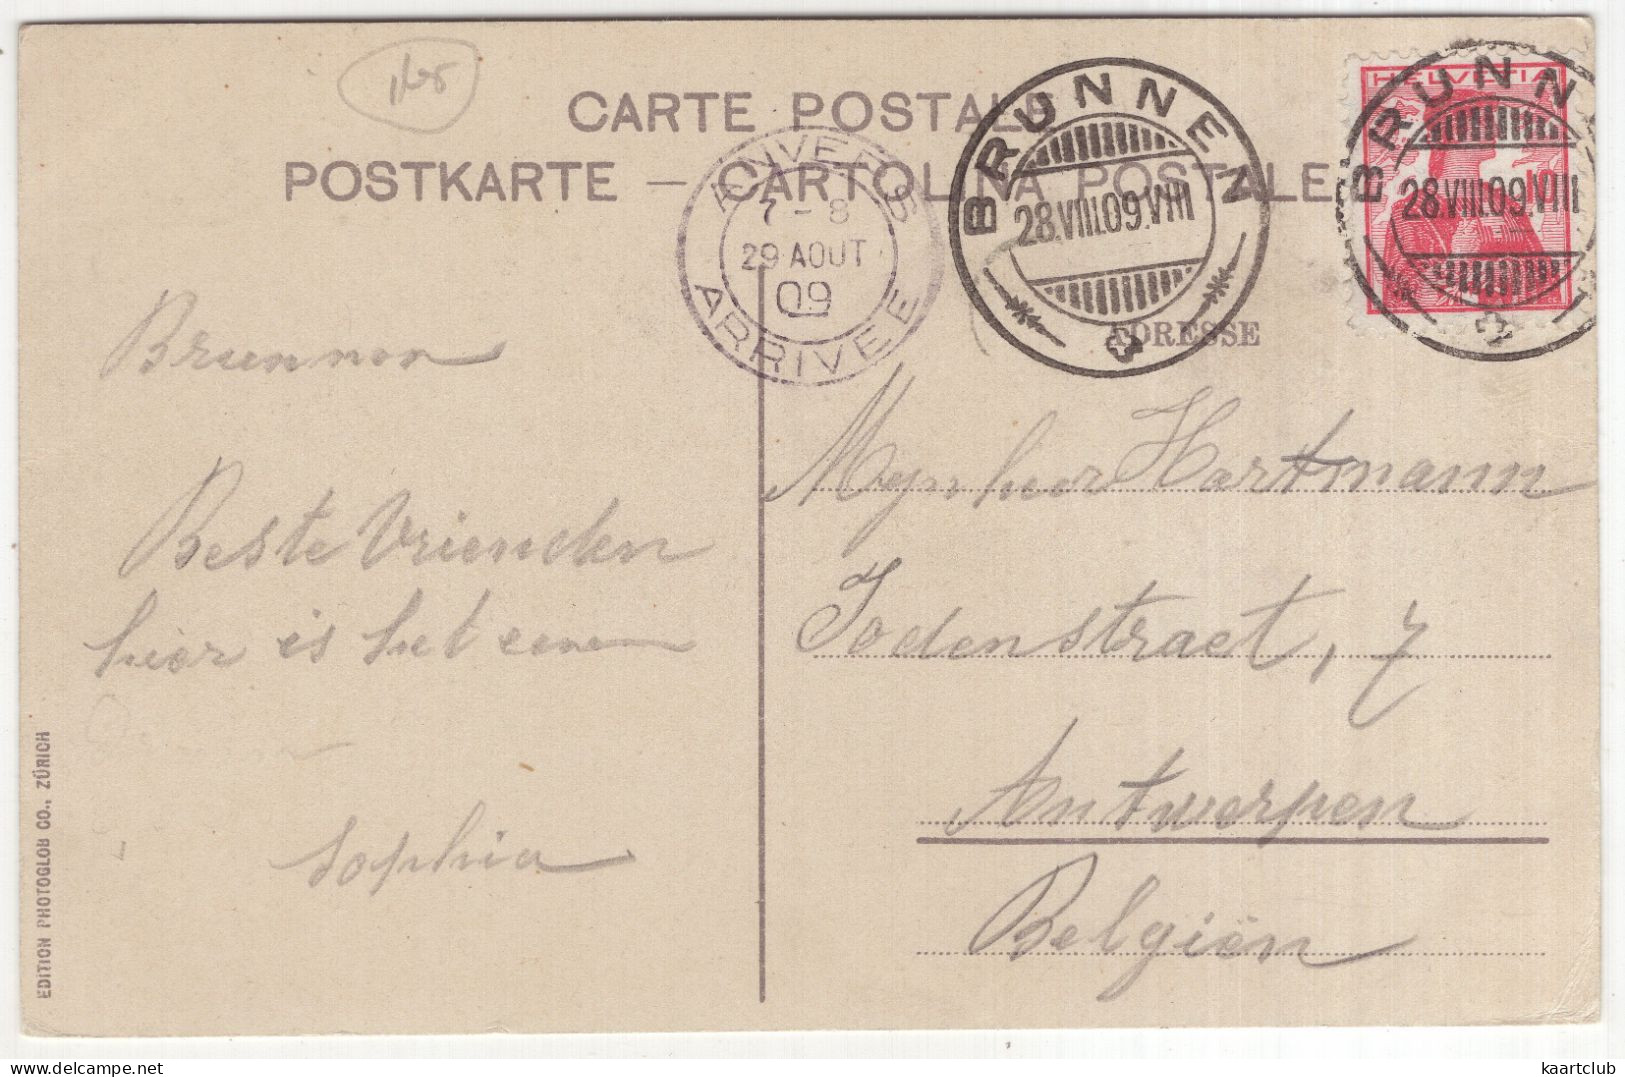 CARTE POSTALE
POSTKARTE — CARTOLINA POSTALE
ANVERS
7-8
29 AOUT
09
ARRIVEE
BRUNNEN
28.VIII.09.VIII
HELVETIA
BRUNNEN
28.VIII.09.VIII
ADRESSE
Brunnen
Beste Vrienden
hier is het eenen
Sophia
Mynheer Hartmann
Jodenstraet, 7
Antwerpen
Belgiën
EDITION PHOTOGLOB CO., ZÜRICH
kaartclub